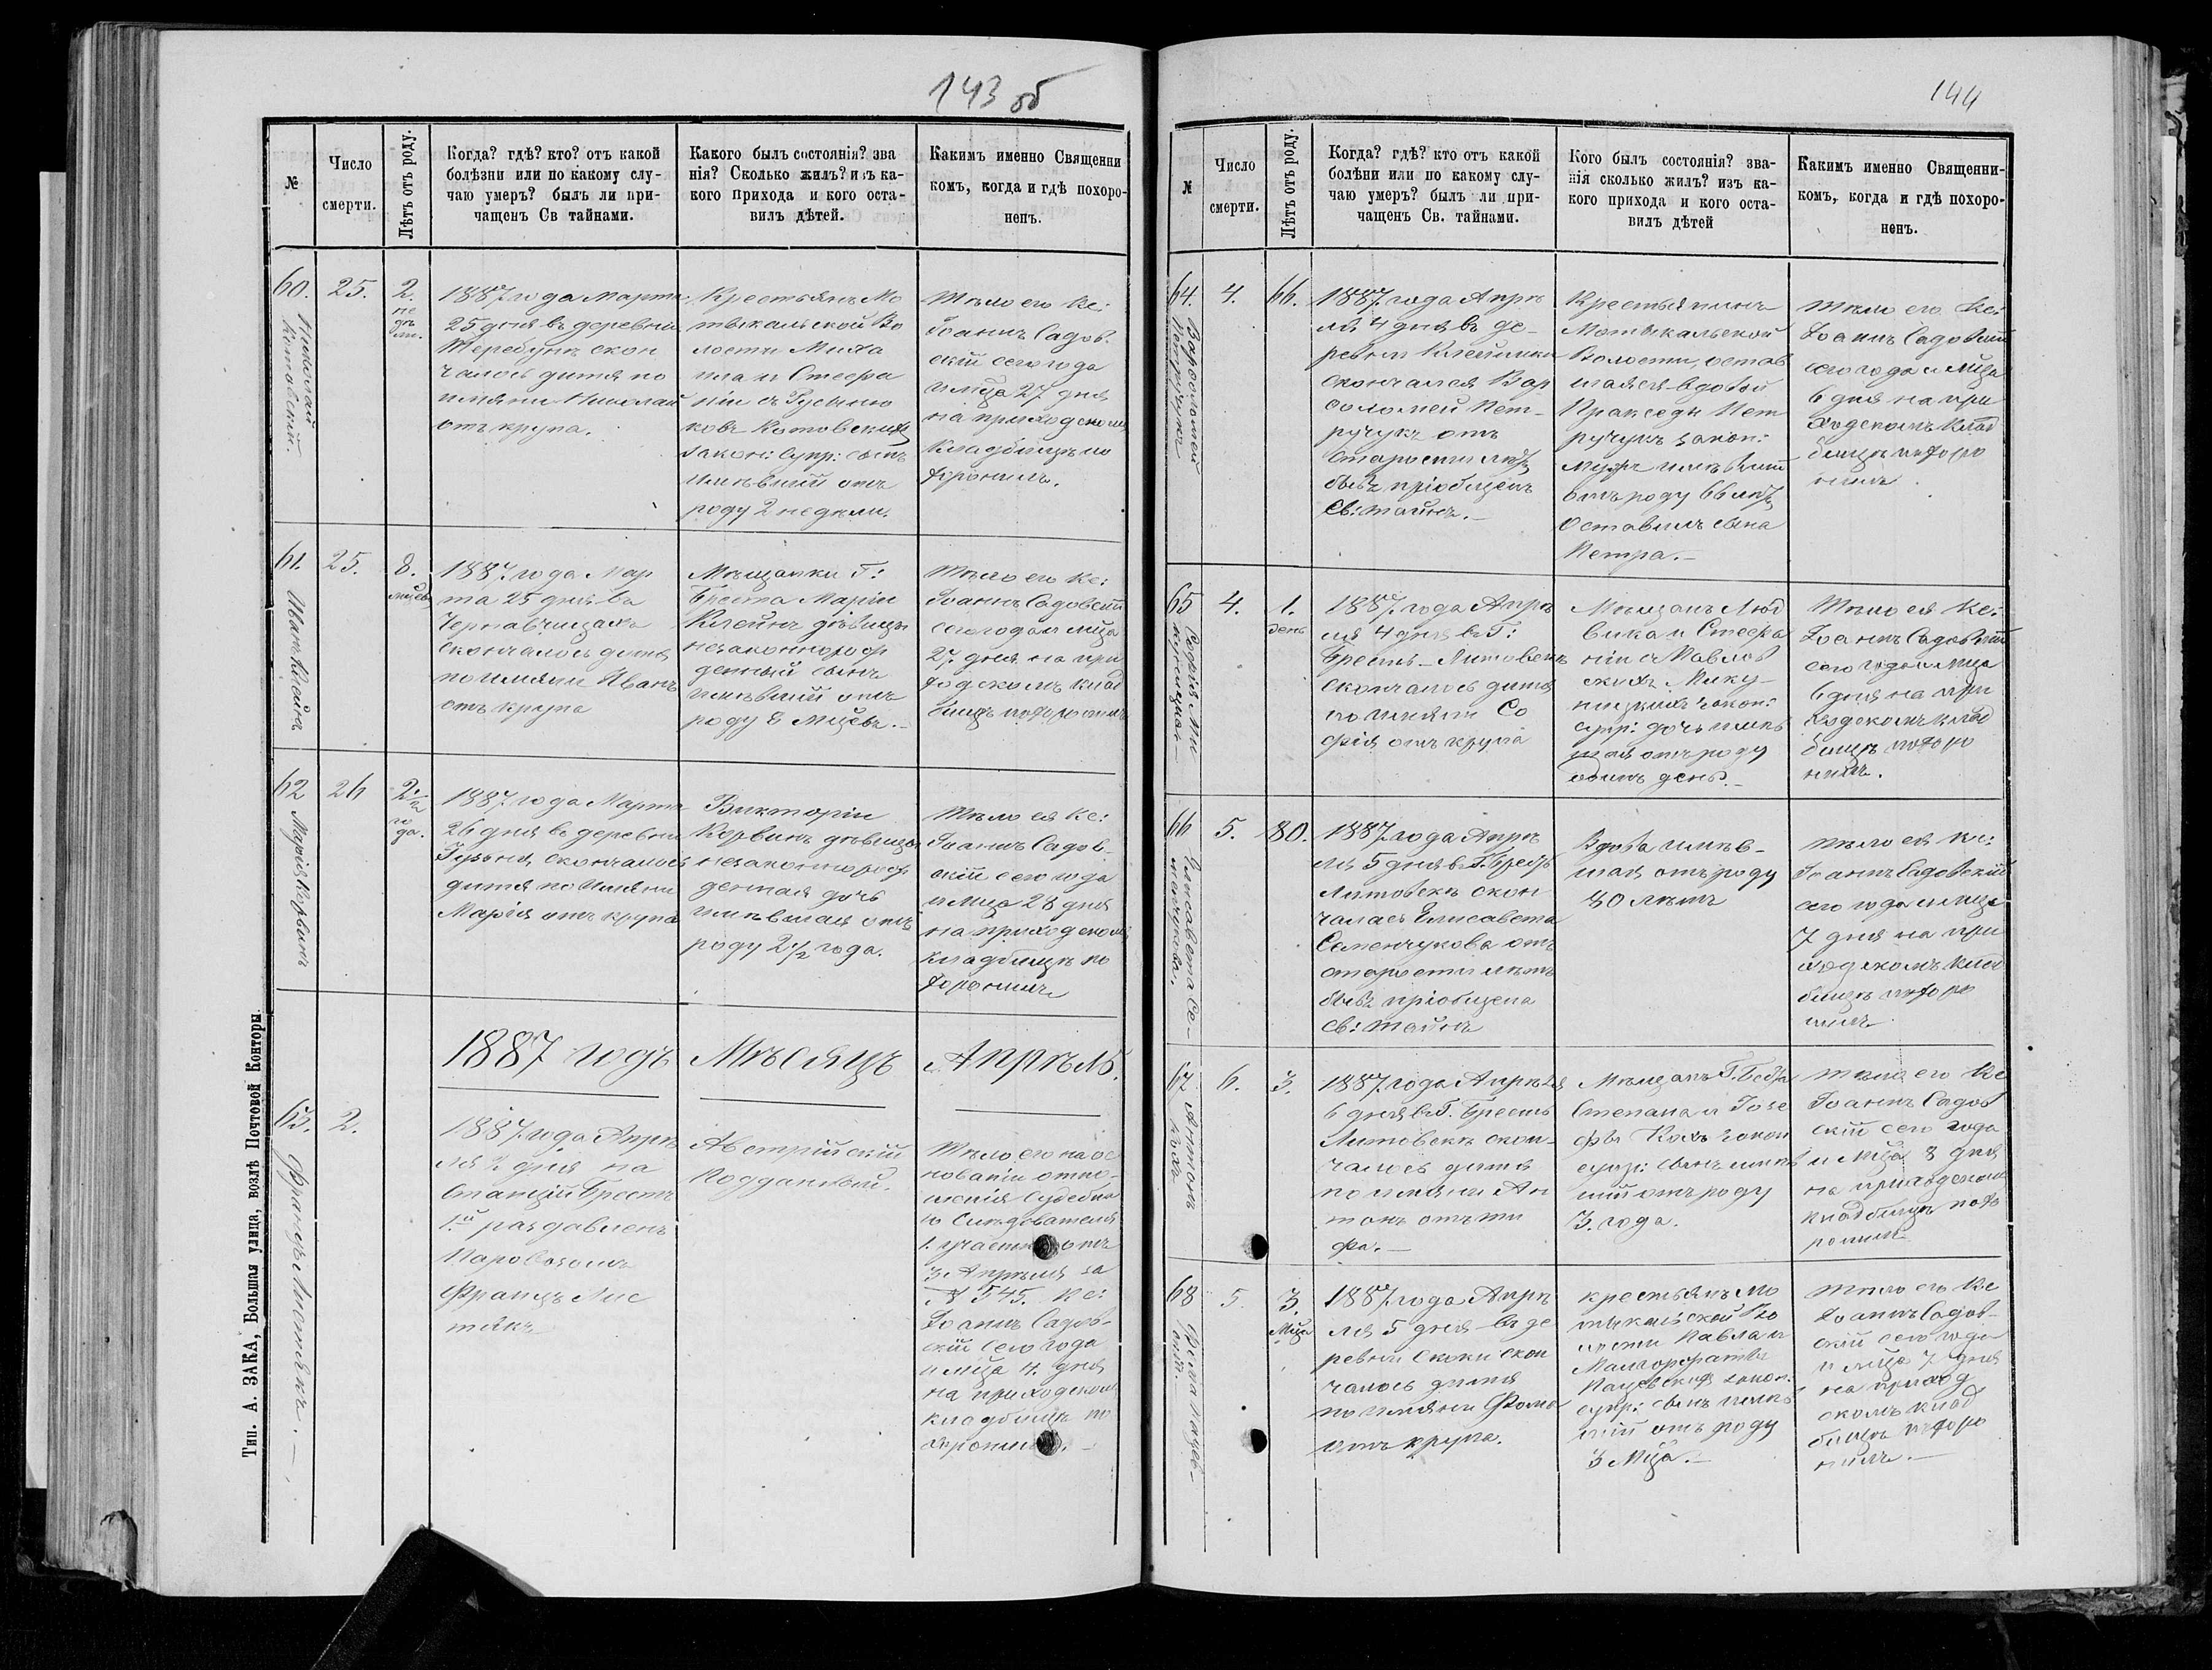 143 об
№
Число
смерти.
Лѣтъ отъ роду.
Когда? гдѣ? кто? отъ какой
болѣзни или по какому слу-
чаю умеръ? былъ ли при-
чащенъ Св тайнами.
Какого былъ состоянія? зва
нія? Сколько жилъ? изъ ка-
кого прихода и кого оста-
вилъ дѣтей.
Какимъ именно Священни
комъ, когда и гдѣ похоро-
ненъ.
60.
Николай
Котовскій.
25.
2.
не
дѣ
ли.
1887. года Марта
25 дня въ деревни
Теребунъ скон
чалось дитя по
имяни Николай
отъ крупа.
Крестьянъ Мо
тыкальской Во
лости Миха
ила и Стефа
ніи съ
Котовскихъ
закон: супр: сынъ
имѣвшій отъ
роду 2 недѣли.
Тѣло его Кс:
Іоаннъ Садов-
скій сего года
и мца 27 дня
на приходскомъ
кладбищѣ по
хоронилъ.
61.
Иванъ
25.
8.
мцевъ
1887. года Мар
та 25 дня въ
Чернавчицахъ
скончалось дитя
по имяни Иванъ
отъ крупа
Мѣщанки Г:
Бреста Маріи
Клейнъ дѣвицы
незаконнорож
денный сынъ
имѣвшій отъ
роду 8 мцевъ.-
Тѣло его Кс:
Іоаннъ Садовскій
сего года и мца
27. дня на при
ходскомъ клад
бищѣ похоронилъ
62
Марія Корвинъ
26
2 1/2
го
да.
1887. года Марта
26 дня въ деревни
скончалось
дитя по имяни
Марія отъ крупа
Викторіи
Корвинъ дѣвицы
незаконнорож
денная дочь
имѣвшая отъ
роду 2 1/2 года.
Тѣло ея Кс:
Іоаннъ Садов-
скій сего года
и мца 28 дня
на приходскомъ
кладбищѣ по
хоронилъ
1887 годъ Мѣсяцъ Апрѣль.
63.
Францъ Листякъ.-
2.
1887. года Апрѣ
ля 2 дня на
Станціи Брестъ
1.й раздавленъ
паровозомъ
Францъ Лис
тякъ
Австрійскій
Подданный.
Тѣло его на ос
нованіи отно-
шенія Судебна
го Слѣдователя
1. участка отъ
3 Апрѣля за
№ 545. Кс:
Іоаннъ Садов-
скій сего года
и мца 4. дня
на приходском
кладбищѣ по
хоронилъ.-
Тип. А. ЗАКА, Большая улица, возлѣ Почтовой Конторы.
144
№
Число
смерти.
Лѣтъ отъ роду.
Когда? гдѣ? кто отъ какой
болѣни или по какому слу-
чаю умеръ? былъ ли при-
чащенъ Св. тайнами.
Кого былъ состоянія? зва-
нія сколько жилъ? изъ ка-
кого прихода и кого оста-
вилъ дѣтей
Какимъ именно Священни-
комъ, когда и гдѣ похоро-
ненъ.
64.
Варфоломей
Петручукъ
4.
66.
1887. года Апрѣ
ля 4 дня въ де-
ревни Клейники
скончался Вар
фоломей Пет-
ручукъ отъ
старости лѣтъ
бывъ пріобщенъ
Св: тайнъ.-
Крестьянинъ
Мотыкальской
Волости, остав
шаяся вдовой
Пракседы Пет
ручукъ закон:
мужъ имѣвшій
отъ роду 66 лѣтъ
Оставилъ сына
Петра.-
Тѣло его Кс:
Іоаннъ Садовскій
сего года и мца
6 дня на при
ходскомъ клад
бищѣ похоро
нилъ.
65
Софія Ми
куницкая-
4.
1.
день
1887. года Апрѣ
ля 4 дня въ Г:
Брестъ-Литовскъ
скончалось дитя
по имяни Со
фія отъ крупа
Мѣщанъ Люд
вика и Стефа
ніи съ Павлов
скихъ Мику-
ницкихъ закон:
супр: дочь имѣв
шая отъ роду
одинъ день.-
Тѣло ея Кс:
Іоаннъ Садовскій
сего года и мца
6 дня на при
ходскомъ клад
бищѣ похоро
нилъ.
66
Елисавета Се-
менчукова.
5.
80.
1887. года Апрѣ
ля 5 дня въ Г. Брестъ
Литовскъ скон
чалась Елисавета
Семенчукова отъ
старости лѣтъ
бывъ пріобщена
Св: тайнъ
Вдова имѣв-
шая отъ роду
80 лѣтъ
Тѣло ея Кс:
Іоаннъ Садовскій
сего года и мца
7 дня на при
ходскомъ клад
бищѣ похоро
нилъ
67
Антонъ
Кохъ.
6.
3.
1887. года Апрѣля
6 дня въ Г. Брестъ
Литовскъ скон-
чалось дитя
по имяни Ан
тонъ отъ ти
фа.-
Мѣщанъ Г.
Степана и Іозе
фы Кохъ закон
супр: сынъ имѣв
шій отъ роду
3. года.
Тѣло его Кс
Іоаннъ Садов
скій сего года
и мца 8 дня
на приходскомъ
кладбищѣ похо
ронилъ
68
Фома Пацев-
скій.
5.
3.
мца
1887. года Апрѣ
ля 5 дня въ де
ревни Скоки скон
чалось дитя
по имяни Фома
отъ крупа.
Крестьянъ Мо
тыкальской Во
лости Павла и
Малгоржаты
Пацевскихъ закон.
супр: сынъ имѣв
шій отъ роду
3 мца.-
Тѣло его Кс
Іоаннъ Садов-
скій сего года
и мца 7 дня
на приход
скомъ клад
бищѣ похоро
нилъ.-